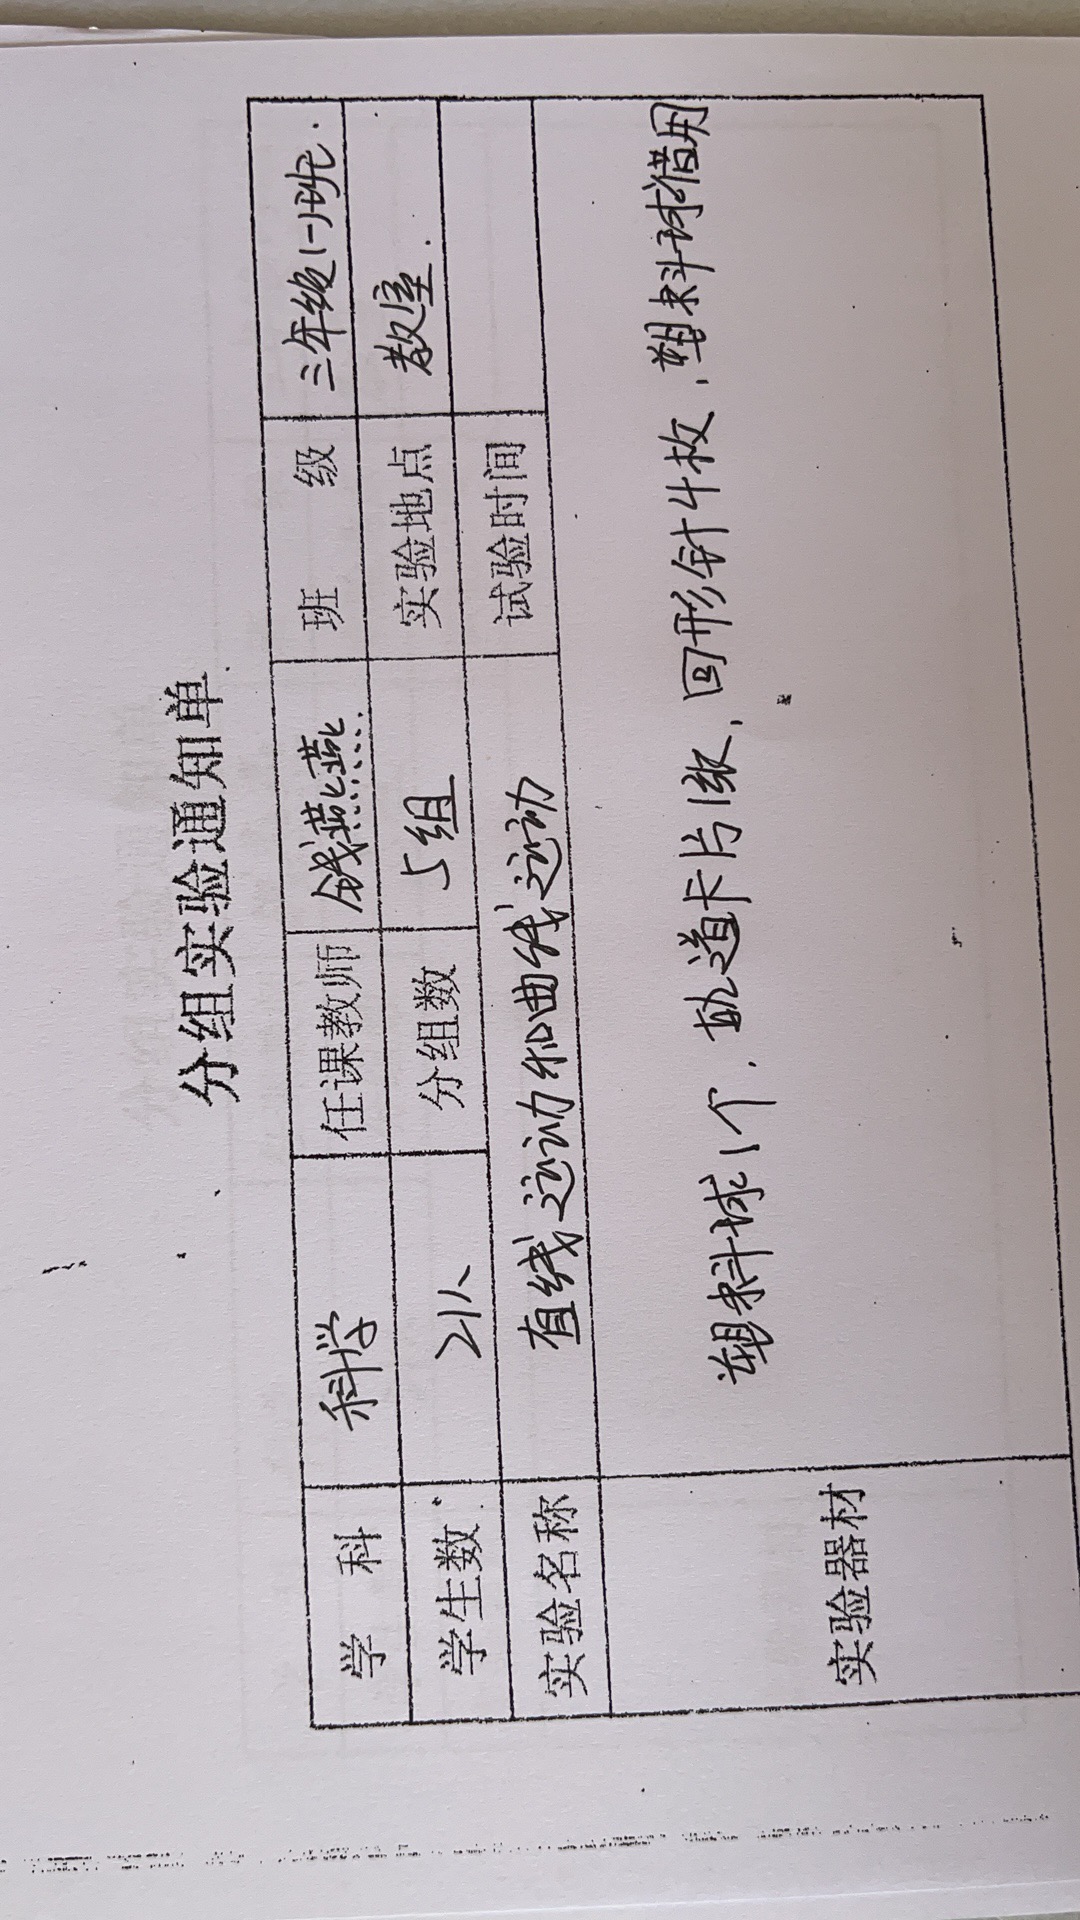 分组实验通知单
学 科 科学 任课教师 钱燕燕 班 级 三年级(一)班.
学生数 21人 分组数 5组 实验地点 教室.
实验名称 直线运动和曲线运动 试验时间
实验器材 塑料球1个.轨道卡片1张、回形针4枚、塑料球借用